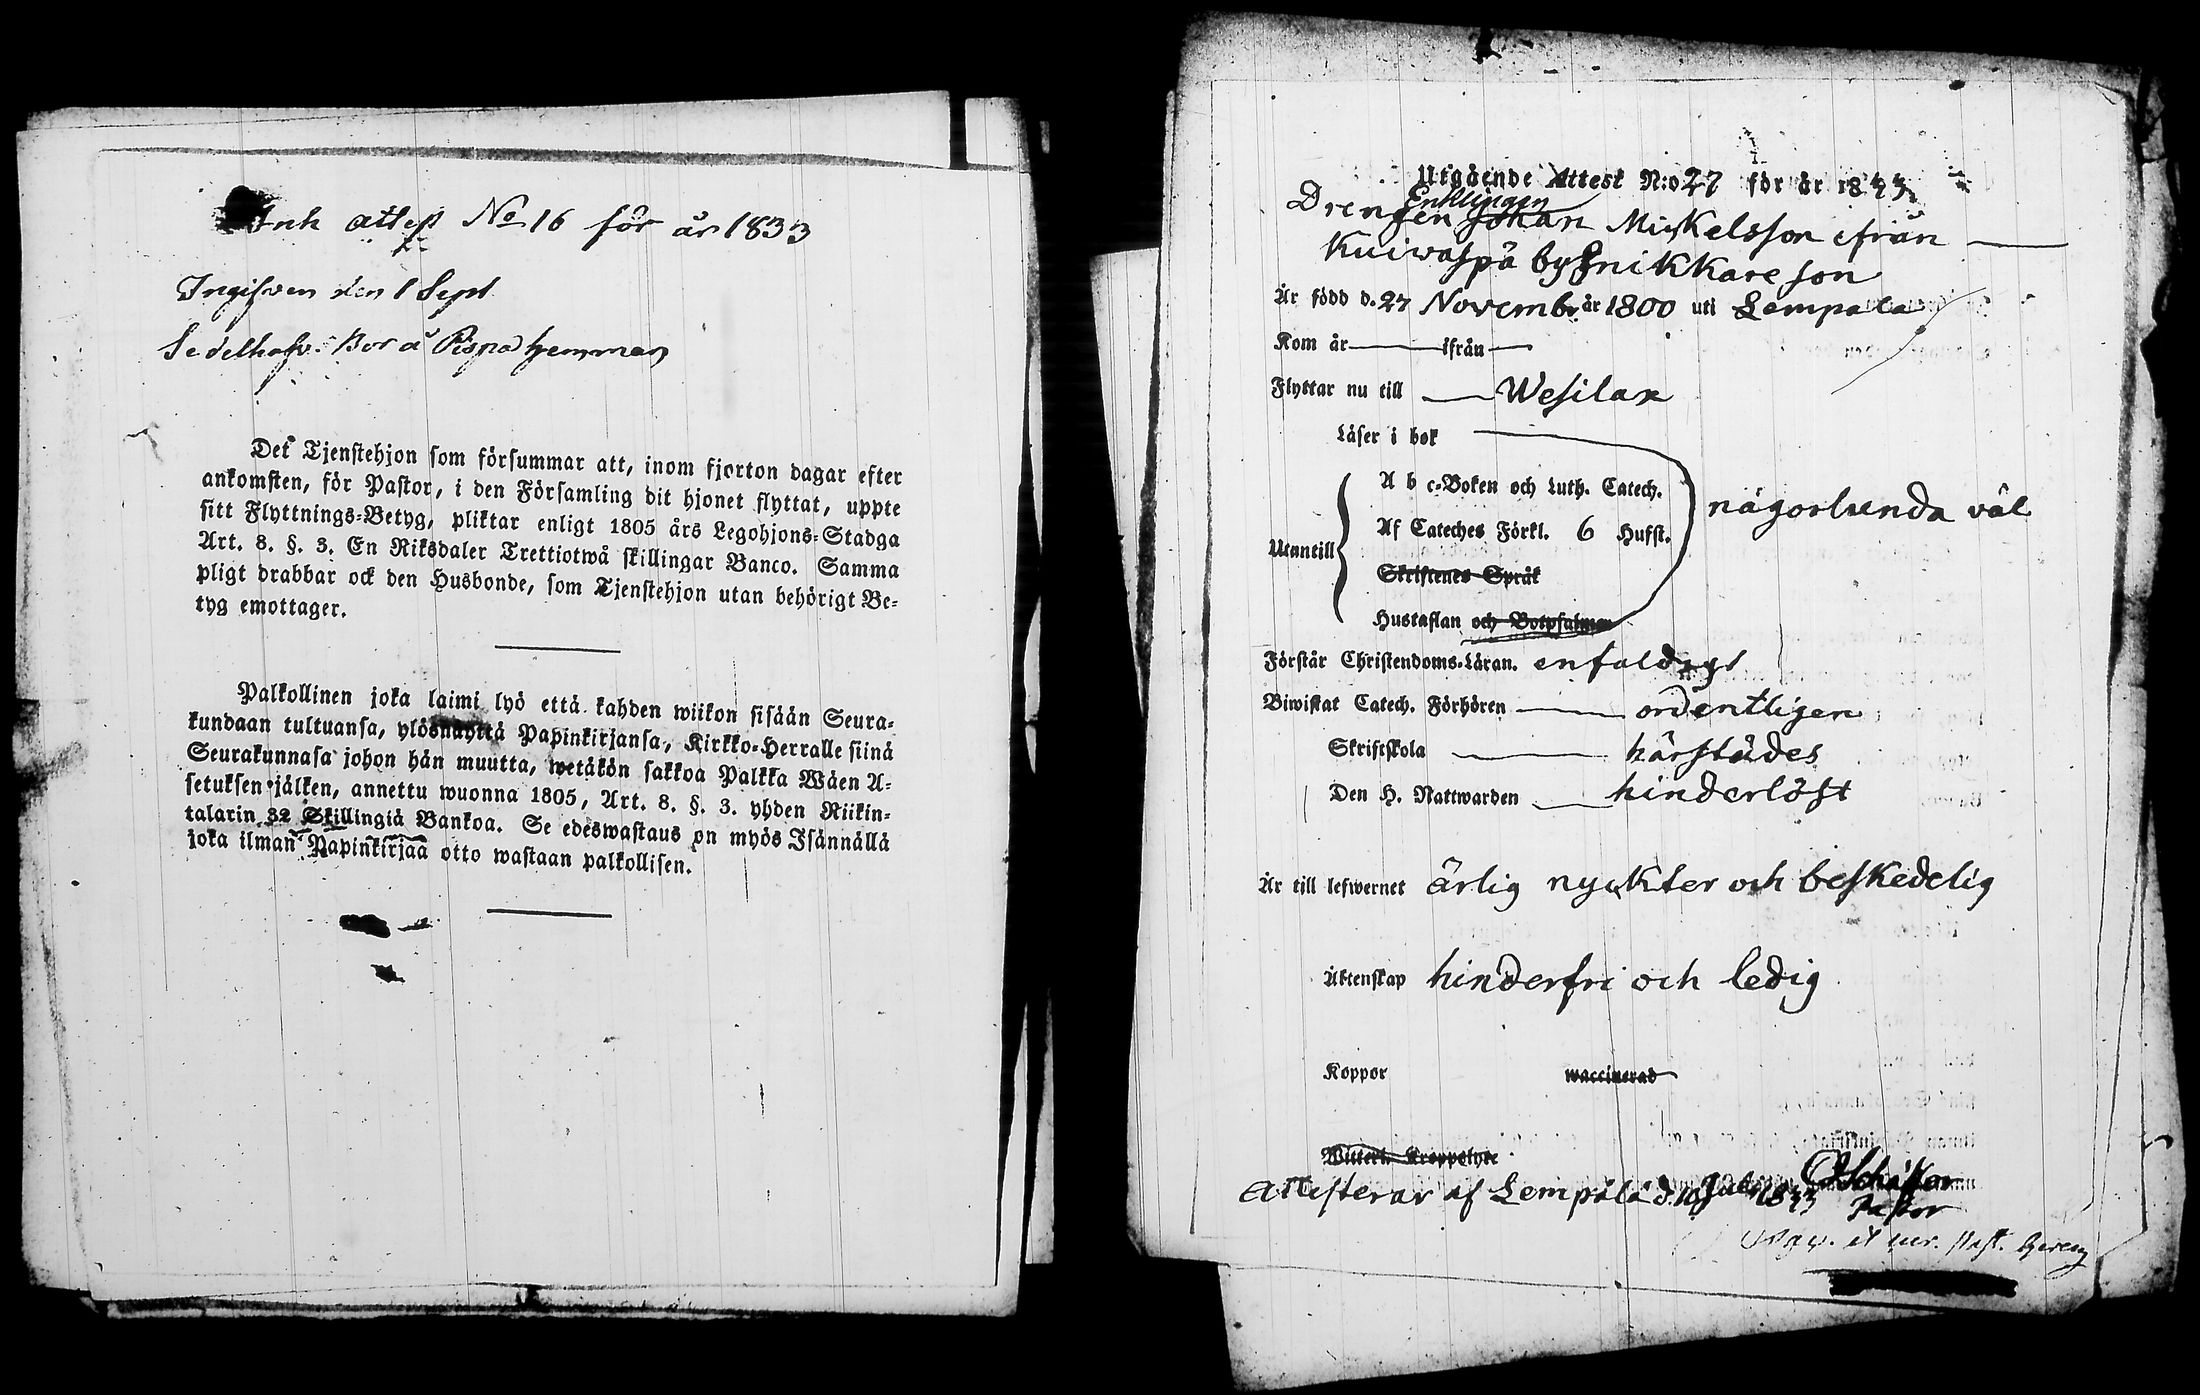 Ink attest No 16 för år 1833
Ingifwen den 1 Sept
Sedelhafv. Bor å Pispa hemman
Det Tjenstehjon som försummar att, inom fjorton dagar efter
ankomsten, för Pastor, i den Församling dit hjonet flyttat, uppte
sitt Flyttnings-Betyg, pliktar enligt 1805 års Legohjons-Stadga
Art. 8. §. 3. En Riksdaler Trettiotwå skillingar Banco. Samma
pligt drabbar ock den Husbonde, som Tjenstehjon utan behörigt Be-
tyg emottager.
Palkollinen joka laimi lyö että kahden wiikon sisään Seura-
kundaan tultuansa, ylösnäyttä Papinkirjansa, Kirkko-Herralle siinä
Seurakunnasa johon hän muutta, wetäkön sakkoa Palkka Wäen A-
setuksen jälken, annettu wuonna 1805, Art. 8. §. 3. yhden Riikin-
talarin 32 Skillingiä Bankoa. Se edeswastaus on myös Isännällä
joka ilman Papinkirjaa otto wastaan palkollisen.
Utgående Attest N:o 27 för år 1833
Enklingen
Drengen Johan Mickelsson ifrån
Kuiwaspä by Snikkare son
Är född d. 27 Novembr år 1800 uti Lempala
Kom år ifrån
Flyttar nu till Wesilax
Läser i bok
A b c-Boken och Luth. Catech.
någorlunda väl
Af Cateches Förkl. 6 Hufst.
Utantill
Skriftenes Språk
Hustaflan och Botpsalmen
Förstår Christendoms-Läran. enfaldigt
Biwistat Catech. Förhören ordentligen
Skriftskola härstädes
Den H. Nattwarden hinderlöst
Är till lefwernet ärlig nyckter och beskedelig
Äktenskap hinderfri och ledig
Koppor waccinerad
Witterl. Kroppslyte
Attesterar af Lempälä d. 10 Juli 1833
Pastor